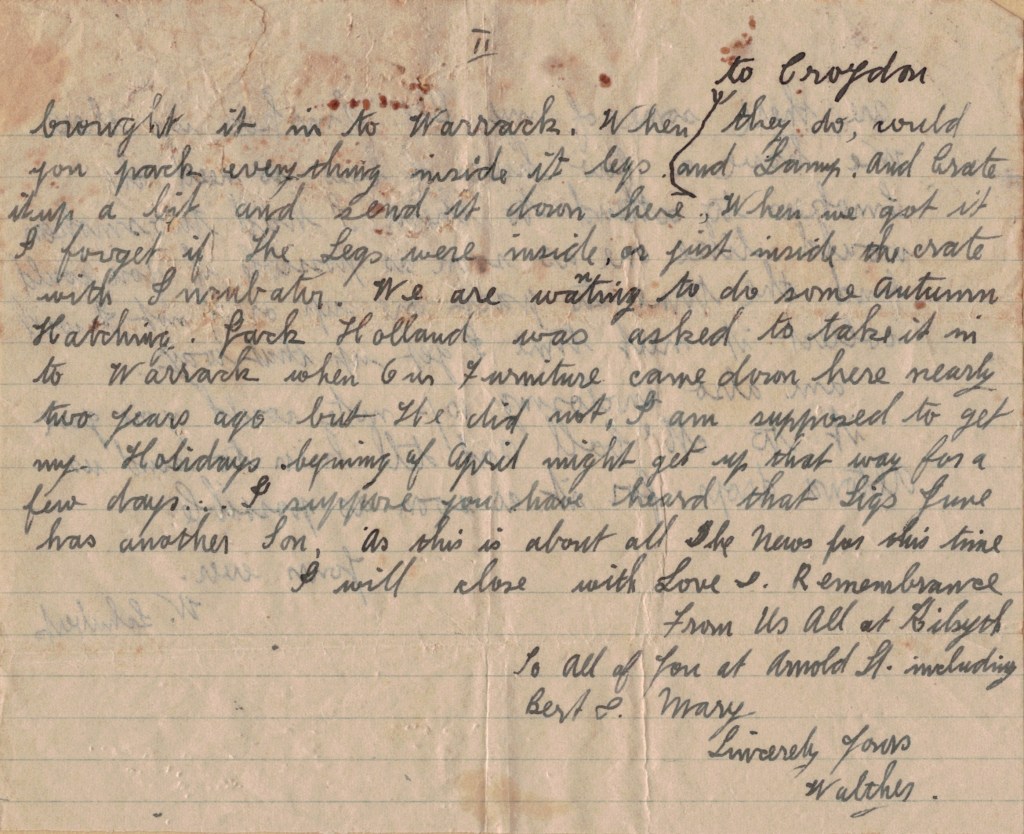 II
to Croydon
browght it in to Warrack. When they do, would
you pack everything inside it legs and Lamp. And Crate
it up a bit and send it down here, When we got it
I forget if the Legs were inside, or just inside the crate
with Incubator. We are wanting to do some Autumn
Hatching. Jack Holland was asked to take it in
to Warrack when Our Furniture came down here nearly
two years ago but He did not, I am supposed to get
my Holidays begining of April might get up that way for a
few days... I suppose you have heard that Sigs June
has another Son, As this is about all The News for this time
I will close with Love &. Remembrance
From Us All at Kilsyth
To All of You at Arnold St. including
Bert &. Mary
Sincerely Yours
Walther.